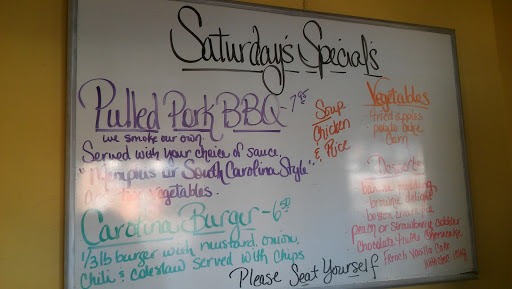 Saturday's Special's
Pulled Pork BBQ - 7.95
we smoke our own.
Served with your choice of sauce,
"Memphis or South Carolina Style"
vegetables.
Carolina Burger - 6.50
1/3 lb burger with mustard, onion,
Chili & coleslaw served with chips
Soup
Chicken
& Rice
Vegetables
fried apples
Corn
Desserts
banana pudding
brownie delight
boston cream pie
peach or strawberry cobbler
chocolate truffle cheesecake
French Vanilla Cake
with choc icing
Please Seat Yourself